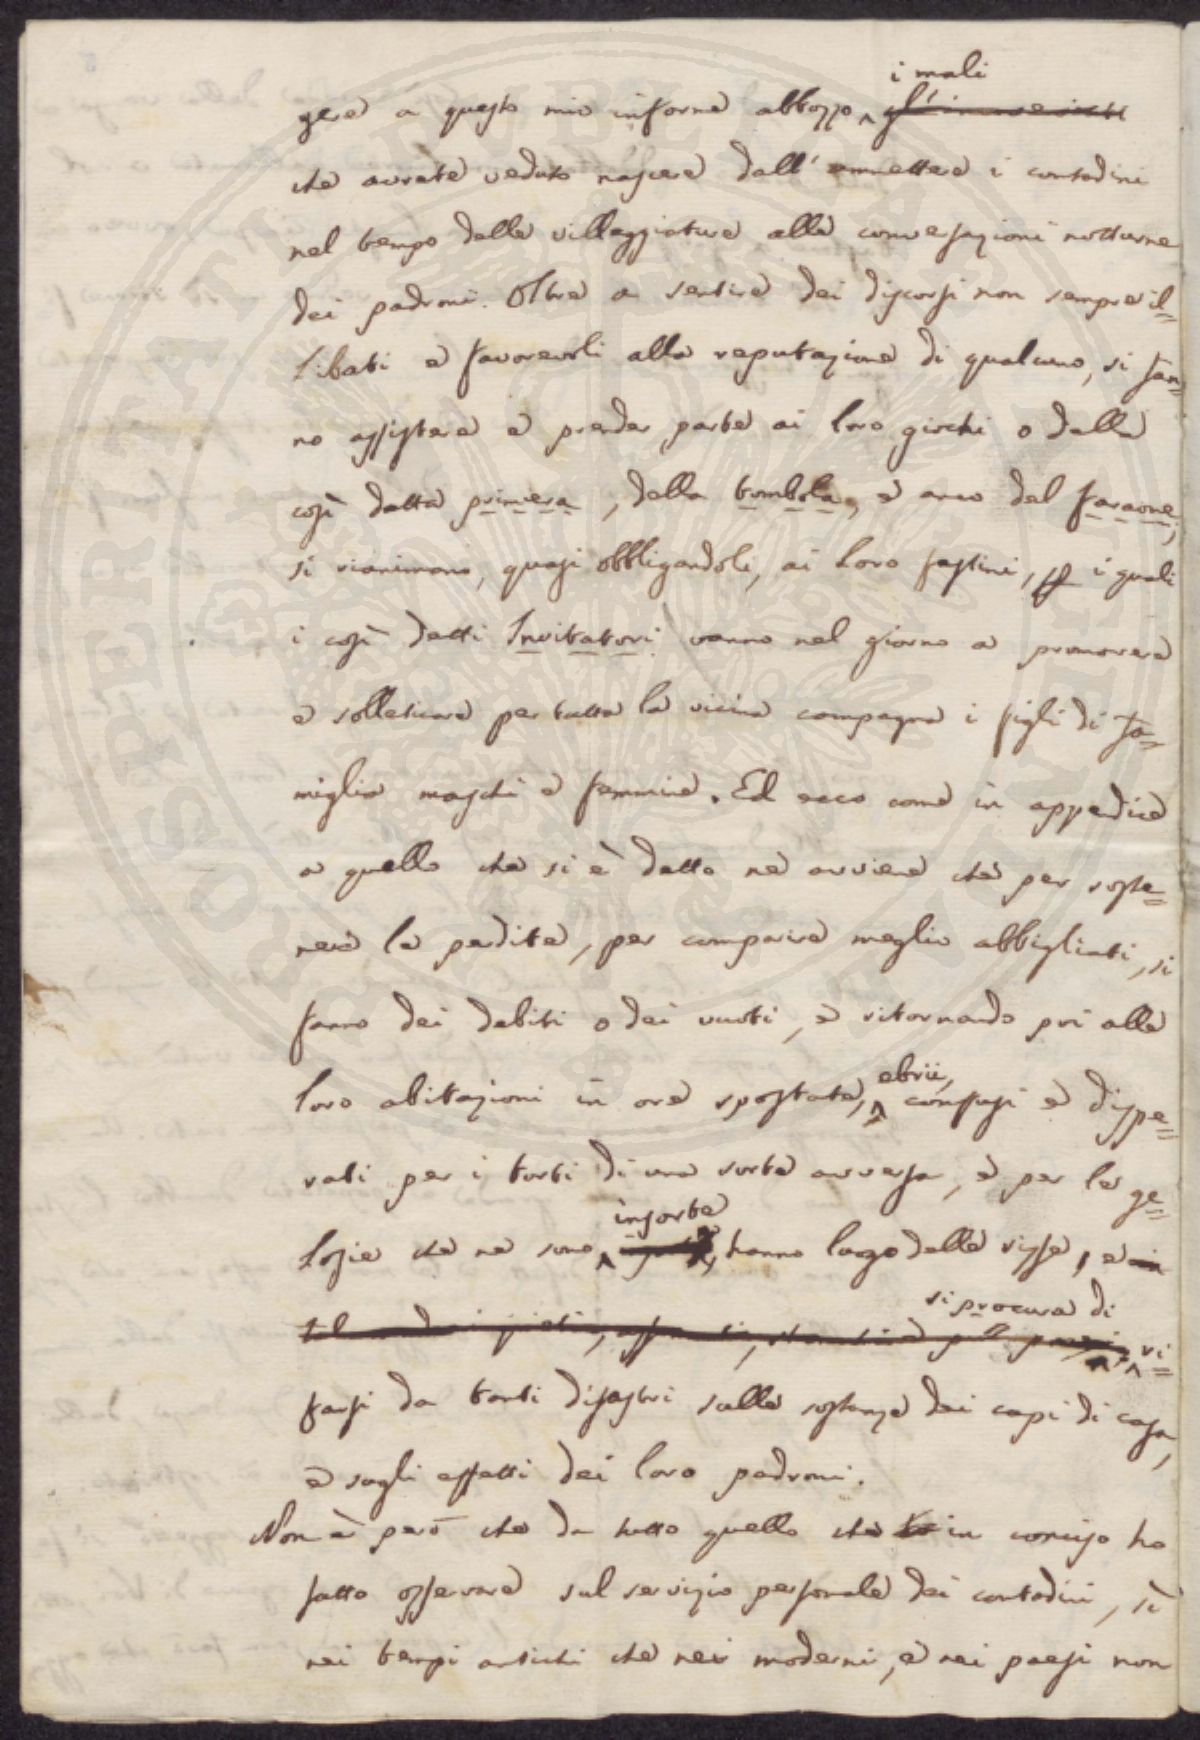 i mali
gere a questo mio informe abbozzo
che avrete veduto nascere dall'ammettere i contadini
nel tempo delle villeggiature alle conversazioni notturne
dei padroni. Oltre a sentire dei discorsi non sempre il=
libati e favorevoli alla reputazione di qualcuno, si fan=
no assistere e prender parte ai loro giochi o della
così detta primiera, della tombola, e anco del faraone,
si rianimano, quasi obbligandoli, ai loro festini, i quali
i così detti Invitatori vanno nel giorno a promovere
e solleticare per tutta la vicina campagna i figli di fa=
miglia maschi e femmine. Ed ecco come in appendice
a quello che si è detto ne avviene che per soste=
nere le perdite, per comparire meglio abbigliati, si
fanno dei debiti o dei vuoti, e ritornando poi alle
ebrii,
loro abitazioni in ore spostate, confusi e dispe=
rati per i torti di una sorte avversa, e per le ge=
insorte
losie che ne sono, hanno luogo delle risse, e
si procura di
ri=
farsi da tanti disastri sulle sostanze dei capi di casa,
e sugli effetti dei loro padroni.
Non è però che da tutto quello che in conciso ho
fatto osservare sul servizio personale dei contadini, sì
nei tempi antichi che nei moderni, e nei paesi non